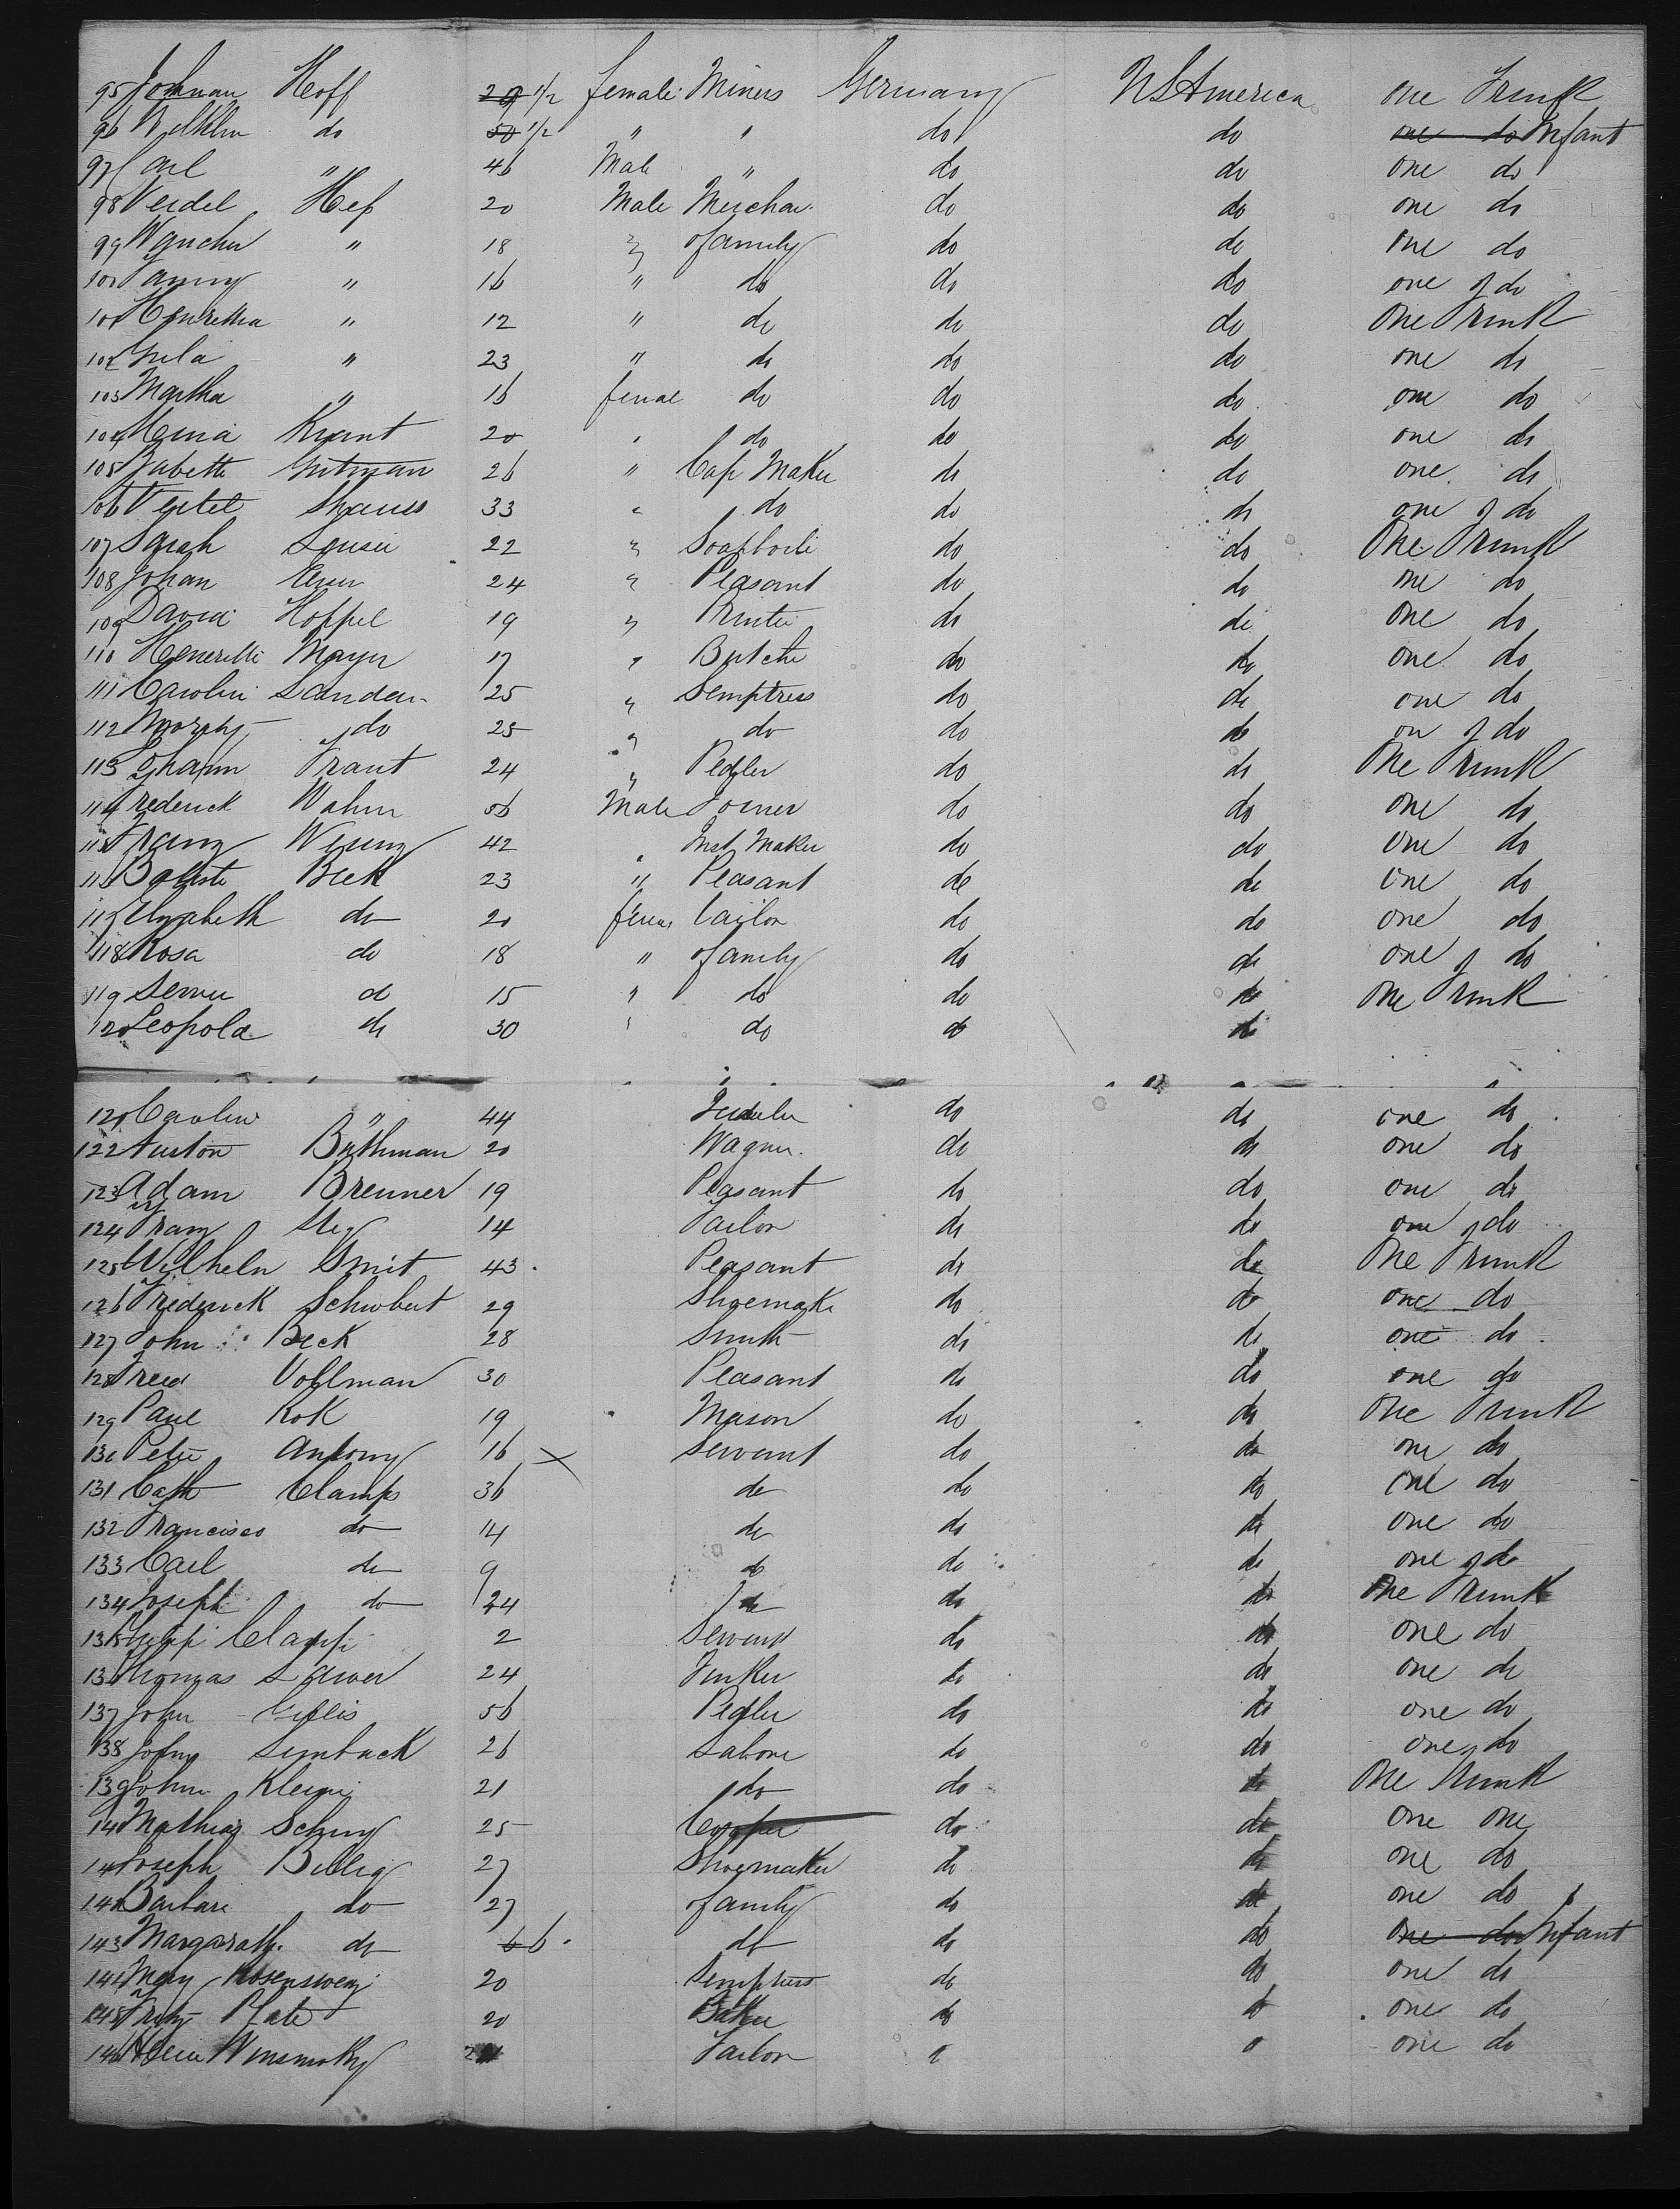 95 Johman Hoff 29 1/2 female Miners Germany USAmerica one Trunk
96 Wilhlm do 50 1/2 " " do do one do Infant
97 Carl " 46 Male " do do one do
98 Veidel Heß 20 Male Merchan do do one do
99 " 18 " of amily do do one do
100 Fanny " 16 " do do do one do
101 Henrettea " 12 " do do do One Trunk
102 Jula " 23 " do do do one do
103 Martha " 16 femal do do do one do
104 Krant 20 " do do do one do
105 Babette Gutman 26 " Cap Maker do do one do
106 Veitel Strauss 33 " do do do one do
107 Sarah 22 " Soapboile do do One Trunk
108 Johan 24 " Peasant do do one do
109 David Hoppel 19 " Printer do do one do
110 Henerette Mayer 17 " Butche do do one do
111 Carolin Landau 25 " Semptress do do one do
112 do 25 " do do do on do
113 Johann Trant 24 " Pedler do do One Trunk
114 Frederick Wahm 56 Male Joiner do do one do
115 Franz 42 " Inst Maker do do one do
116 Babeste Beck 23 " Peasant do do one do
117 Elizabeth do 20 female Tailor do do one do
118 Rosa do 18 " of amily do do one do
119 do 15 " do do do One Trunk
120 Leopold do 30 " do do do
121 Carolin " 44 do do one do
122 Auston Buthman 20 Wagner do do one do
123 Adam Brenner 19 Peasant do do one do
124 Franz 14 Tailor do do one do
125 Wilheln Smit 43 Peasant do do One Trunk
126 Frederick Schubert 29 Shoemake do do one do
127 John Beck 28 Smith do do one do
128 Fred Vollman 30 Peasant do do one do
129 Paul Kok 19 Mason do do One Trunk
130 Peter Antony 16 x Servant do do one do
131 Cath Clamps 36 do do do one do
132 Francisco do 14 do do do one do
133 Carl do 9 do do do one do
134 Joseph do 24 do do do One Trunk
135 Clamp 2 Servant do do one do
136 Thomas 24 do do one do
137 John 56 Pedler do do one do
138 John Limback 26 Labore do do one do
139 John Klein 21 do do do One Trunk
140 Mathias 25 Cooper do do one one
141 Joseph Billig 27 Shoemaker do do one do
142 Barbara do 27 of amily do do one do
143 Margarath do 6 6 do do do one do Infant
144 Mary Rosensweig 20 Semptress do do one do
145 Fritz 20 Baker do do one do
146 Tailor one do